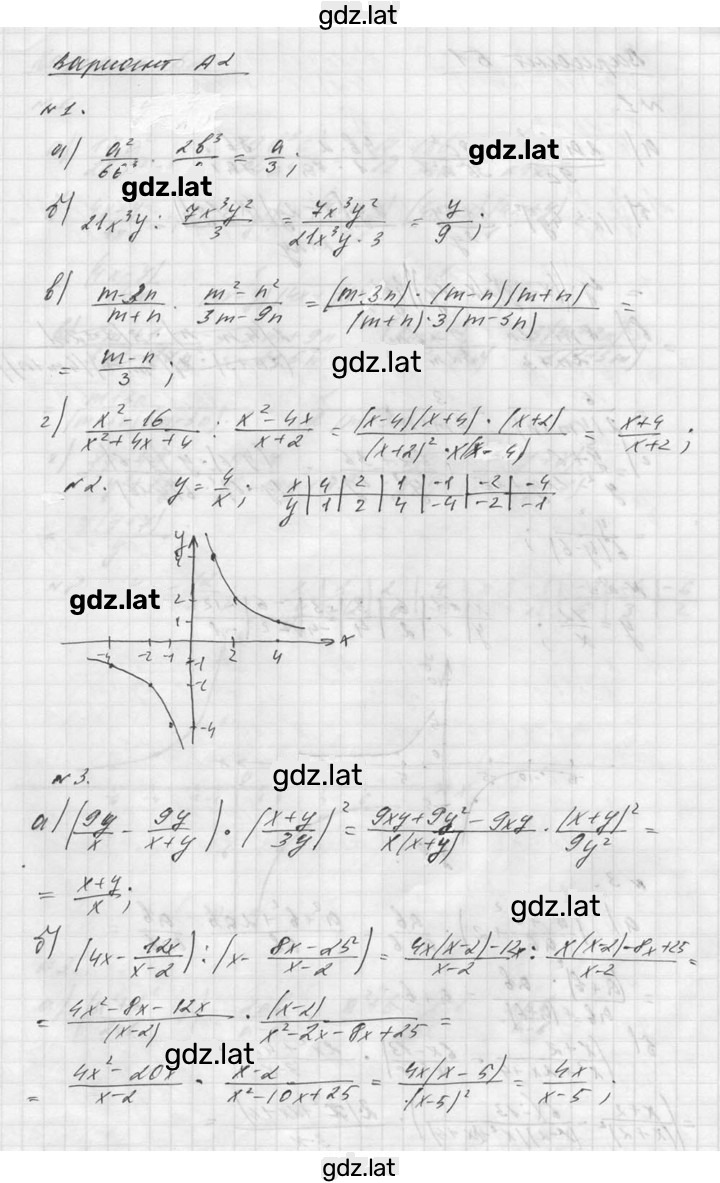 gdz.lat
Вариант А2
№1.
а) a²/6b³ · 2b³/ = a/3;
gdz.lat
gdz.lat
б) 21x³y : 7x³y²/3 = 7x³y²/21x³y·3 = y/9;
в) m-3n/m+n · m²-n²/3m-9n = (m-3n)·(m-n)(m+n)/(m+n)·3(m-3n) =
= m-n/3;
gdz.lat
г) x²-16/x²+4x+4 : x²-4x/x+2 = (x-4)(x+4)·(x+2)/(x+2)²·x(x-4) = x+4/x+2;
№2. y = 4/x; x | 4 | 2 | 1 | -1 | -2 | -4
y | 1 | 2 | 4 | -4 | -2 | -1
y
4
gdz.lat
2
1
x
-4 -2 -1 2 4
-1
-2
-4
№3.
gdz.lat
а) (9y/x - 9y/x+y) · (x+y/3y)² = 9xy+9y²-9xy/x(x+y) · (x+y)²/9y² =
= x+y/x;
gdz.lat
б) (4x - 12x/x-2) : (x - 8x-25/x-2) = 4x(x-2)-12x/x-2 : x(x-2)-8x+25/x-2 =
= 4x²-8x-12x/(x-2) · (x-2)/x²-2x-8x+25 =
gdz.lat
= 4x²-20x/x-2 · x-2/x²-10x+25 = 4x(x-5)/(x-5)² = 4x/x-5;
gdz.lat